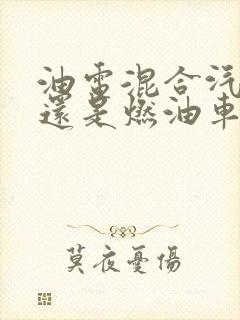 油電混合汽
還是燃油車
莫夜憂傷